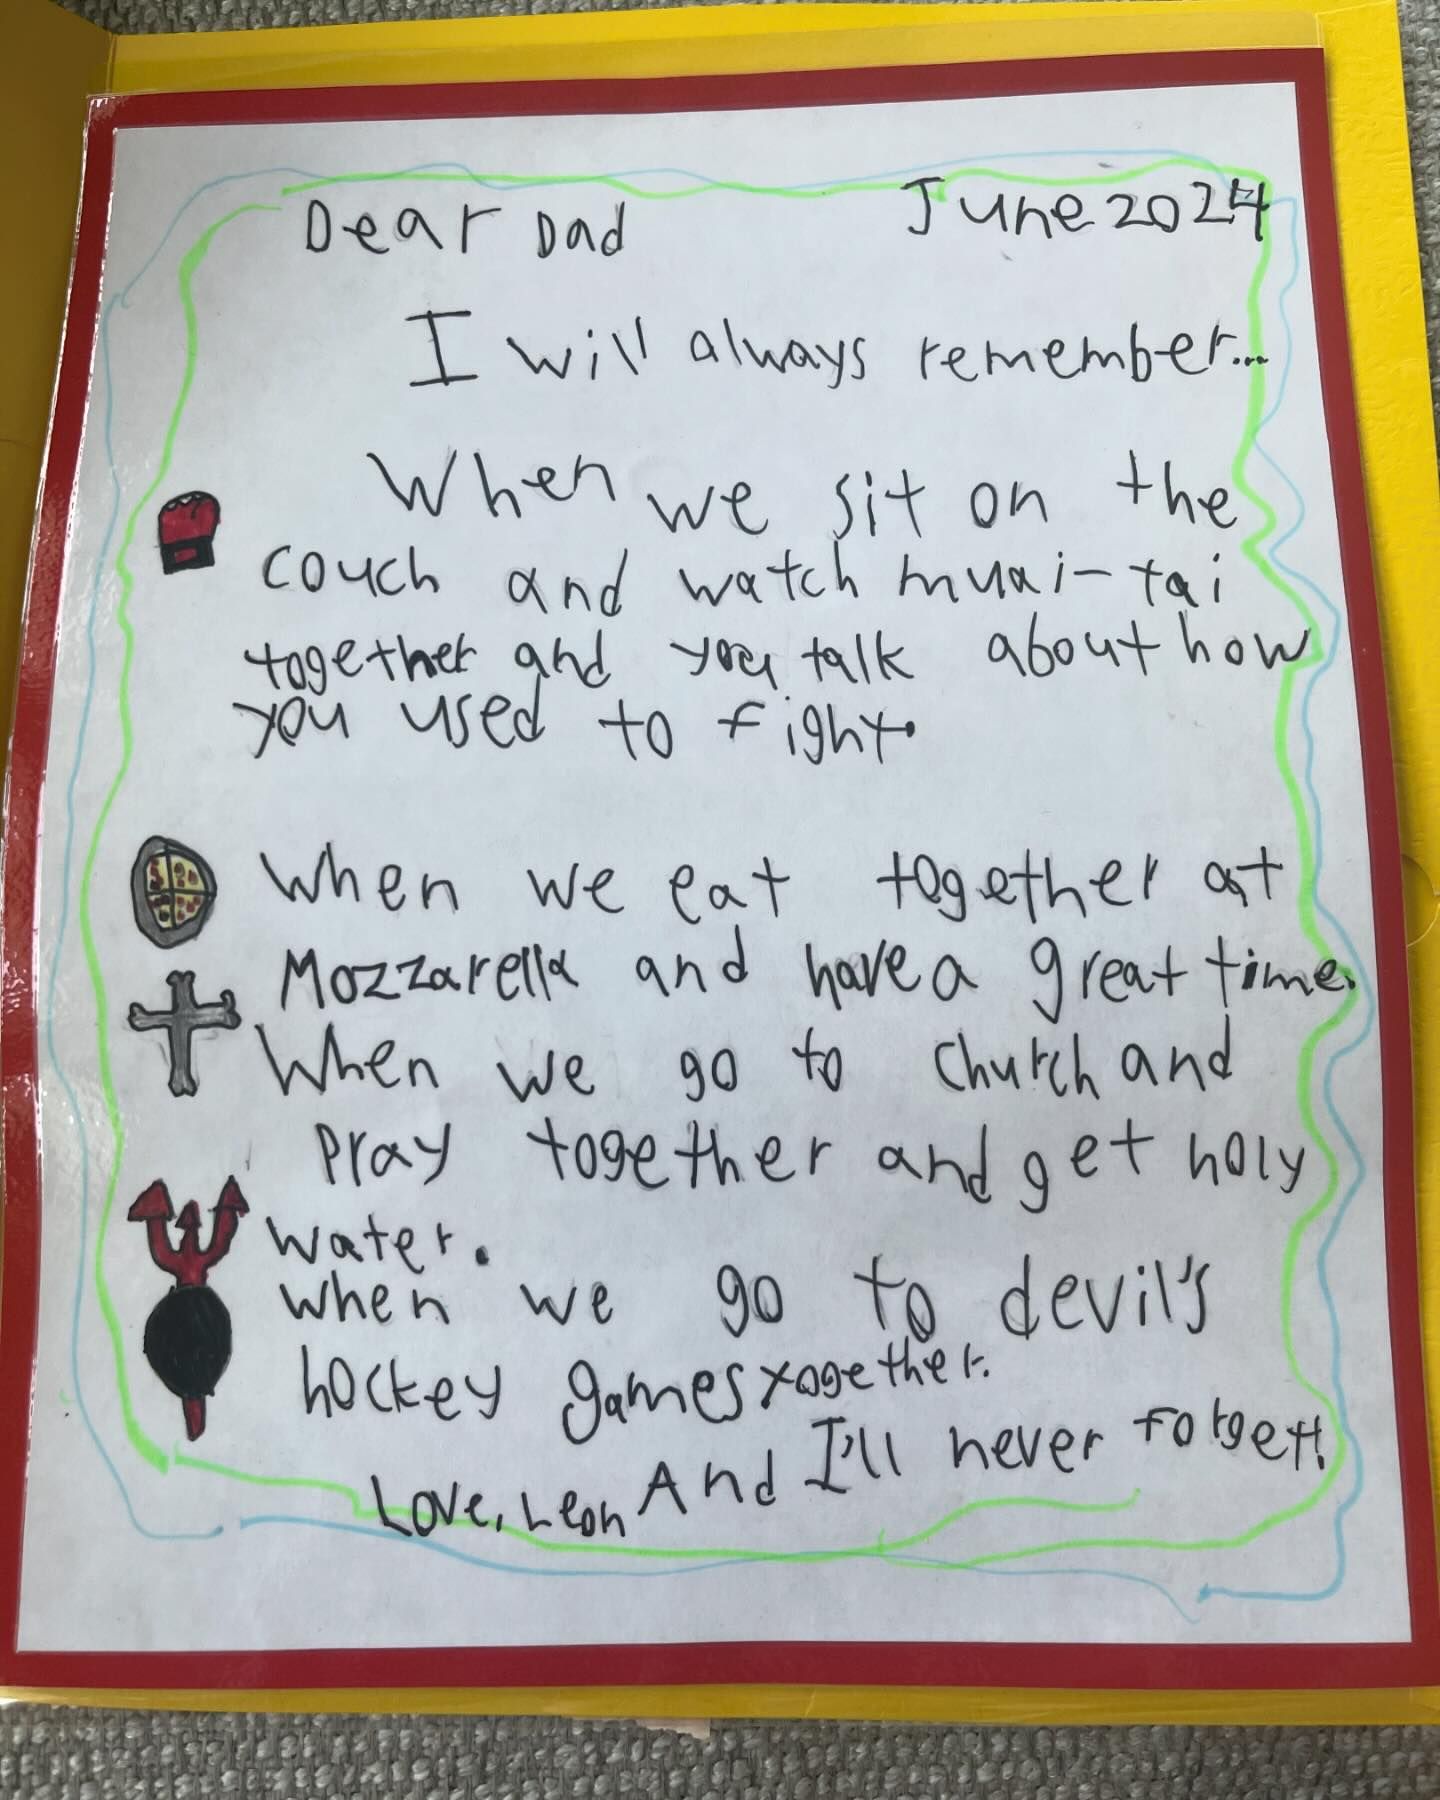 Dear Dad June 2024
I will always remember...
When we sit on the
couch and watch muai-tai
together and you talk about how
you used to fight.
When we eat together at
Mozzarella and have a great time.
When we go to church and
pray together and get holy
water.
When we go to devil's
hockey games together.
And I'll never forget!
Love, Leon